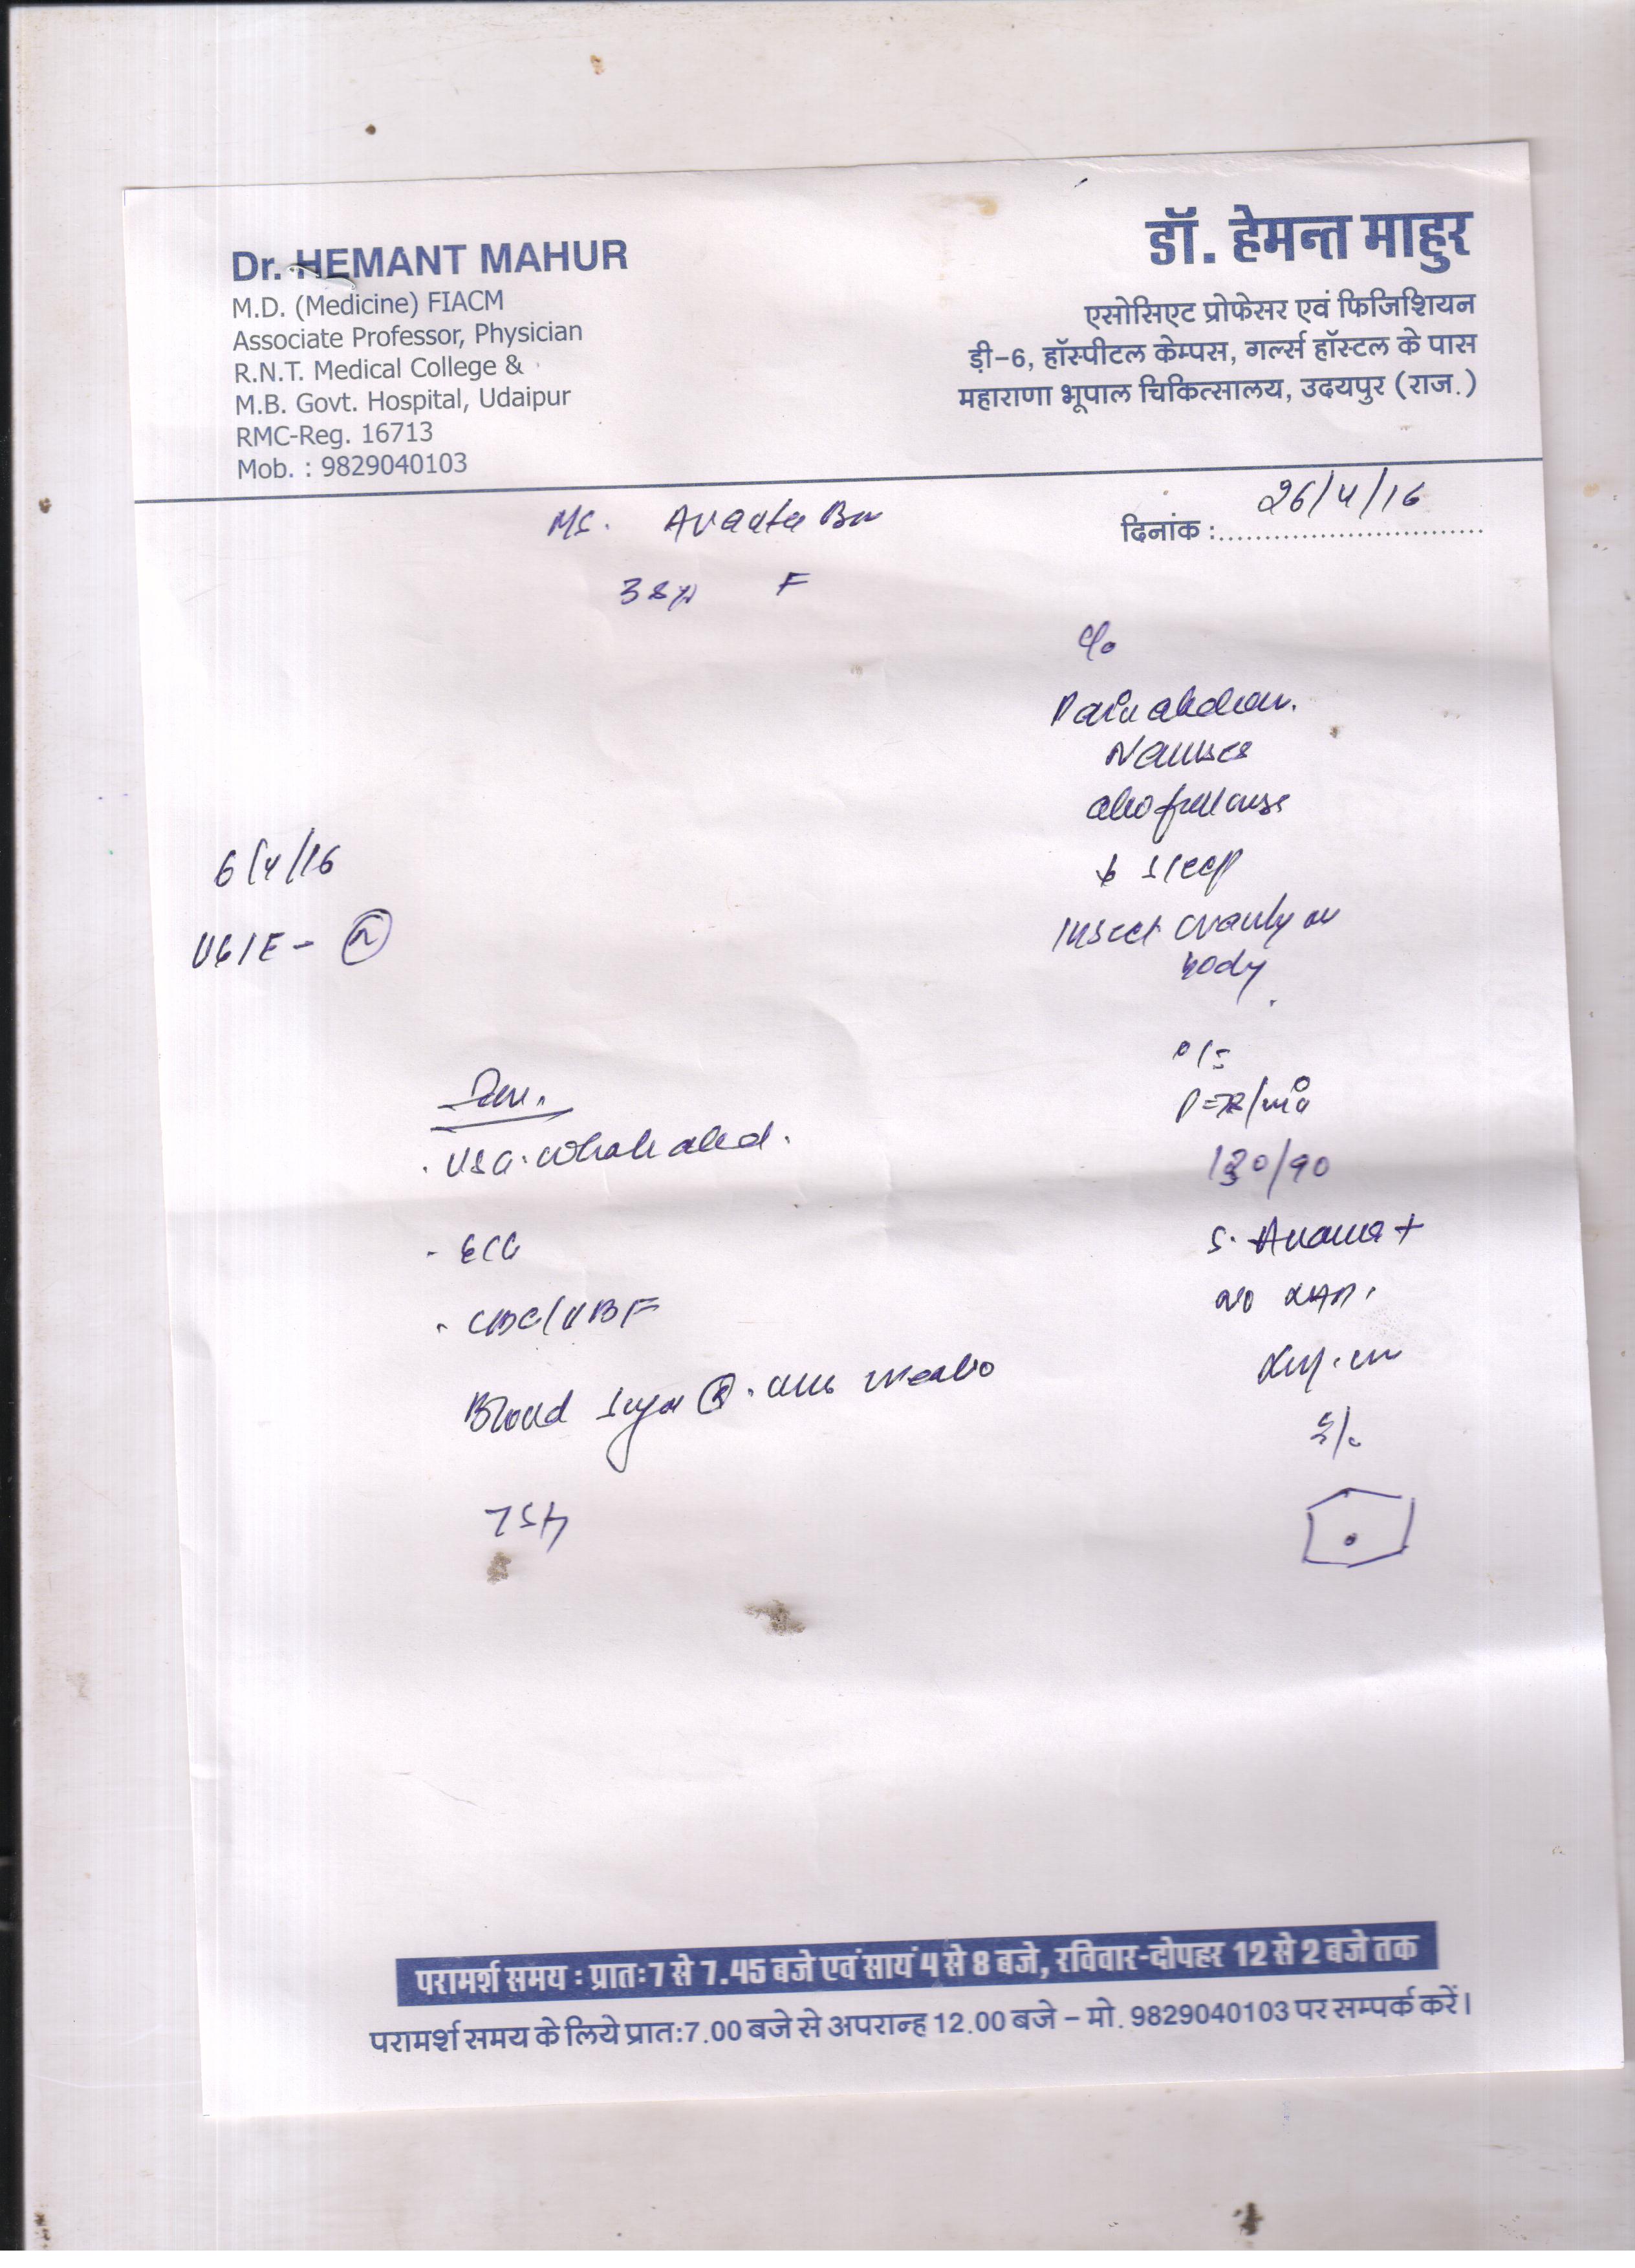 Dr. HEMANT MAHUR
M.D. (Medicine) FIACM
Associate Professor, Physician
R.N.T. Medical College &
M.B. Govt. Hospital, Udaipur
RMC-Reg. 16713
Mob. : 9829040103
डॉ. हेमन्त माहुर
एसोसिएट प्रोफेसर एवं फिजिशियन
ड़ी-6, हॉस्पीटल केम्पस, गर्ल्स हॉस्टल के पास
महाराणा भूपाल चिकित्सालय, उदयपुर (राज.)
दिनांक : 26/4/16
Ms.
F
c/o
Pain abdom.
Nausea
↓ sleep
Insect on
body
6/4/16
UGIE - N
O/E
P=72/min
130/90
no LAP.
S/E
Inv.
. USG. whole abd.
- ECG
. CBC/PBF
Blood Sugar R.
TSH
परामर्श समय : प्रातः 7 से 7.45 बजे एवं सायं 4 से 8 बजे, रविवार-दोपहर 12 से 2 बजे तक
परामर्श समय के लिये प्रातः 7.00 बजे से अपरान्ह 12.00 बजे - मो. 9829040103 पर सम्पर्क करें।